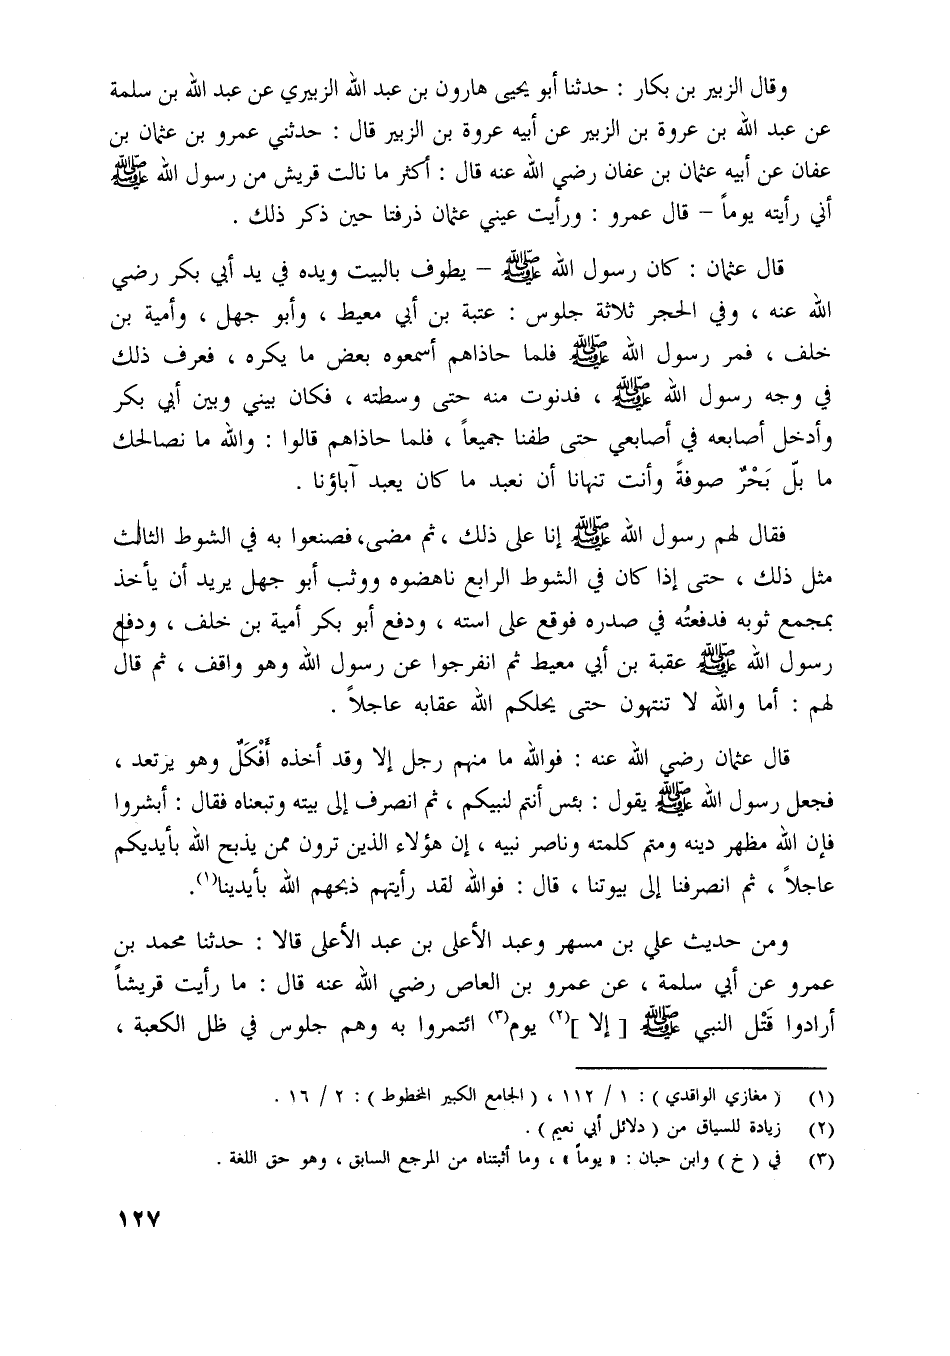 وقال الزبير بن بكار : حدثنا أبو يحيى هارون بن عبد الله الزبيري عن عبد الله بن سلمة
عن عبد الله بن عروة بن الزبير عن أبيه عروة بن الزبير قال : حدثني عمرو بن عثمان بن
عفان عن أبيه عثمان بن عفان رضي الله عنه قال : أكثر ما نالت قريش من رسول الله ﷺ
أني رأيته يوماً – قال عمرو : ورأيت عيني عثمان ذرفتا حين ذكر ذلك .
قال عثمان : كان رسول الله ﷺ – يطوف بالبيت ويده في يد أبي بكر رضي
الله عنه ، وفي الحجر ثلاثة جلوس : عتبة بن أبي معيط ، وأبو جهل ، وأمية بن
خلف ، فمر رسول الله ﷺ فلما حاذاهم أسمعوه بعض ما يكره ، فعرف ذلك
في وجه رسول الله ﷺ ، فدنوت منه حتى وسطته ، فكان بيني وبين أبي بكر
وأدخل أصابعه في أصابعي حتى طفنا جميعاً ، فلما حاذاهم قالوا : والله ما نصالحك
ما بلّ بَحْرٌ صوفةً وأنت تنهانا أن نعبد ما كان يعبد آباؤنا .
فقال لهم رسول الله ﷺ إنا على ذلك ، ثم مضى، فصنعوا به في الشوط الثالث
مثل ذلك ، حتى إذا كان في الشوط الرابع ناهضوه ووثب أبو جهل يريد أن يأخذ
بمجمع ثوبه فدفعتُه في صدره فوقع على استه ، ودفع أبو بكر أمية بن خلف ، ودفع
رسول الله ﷺ عقبة بن أبي معيط ثم انفرجوا عن رسول الله وهو واقف ، ثم قال
لهم : أما والله لا تنتهون حتى يحلكم الله عقابه عاجلاً .
قال عثمان رضي الله عنه : فوالله ما منهم رجل إلا وقد أخذه أَفْكَلٌ وهو يرتعد ،
فجعل رسول الله ﷺ يقول : بئس أنتم لنبيكم ، ثم انصرف إلى بيته وتبعناه فقال : أبشروا
فإن الله مظهر دينه ومتم كلمته وناصر نبيه ، إن هؤلاء الذين ترون ممن يذبح الله بأيديكم
عاجلاً ، ثم انصرفنا إلى بيوتنا ، قال : فوالله لقد رأيتهم ذبحهم الله بأيدينا(١).
ومن حديث علي بن مسهر وعبد الأعلى بن عبد الأعلى قالا : حدثنا محمد بن
عمرو عن أبي سلمة ، عن عمرو بن العاص رضي الله عنه قال : ما رأيت قريشاً
أرادوا قَتْل النبي ﷺ [ إلا ](٢) يوم(٣) ائتمروا به وهم جلوس في ظل الكعبة ،
(١) ( مغازي الواقدي ) : ١ / ١١٢ ، ( الجامع الكبير المخطوط ) : ٢ / ١٦ .
(٢) زيادة للسياق من ( دلائل أبي نعيم ) .
(٣) في ( خ ) وابن حبان : « يوماً » ، وما أثبتناه من المرجع السابق ، وهو حق اللغة .
١٢٧